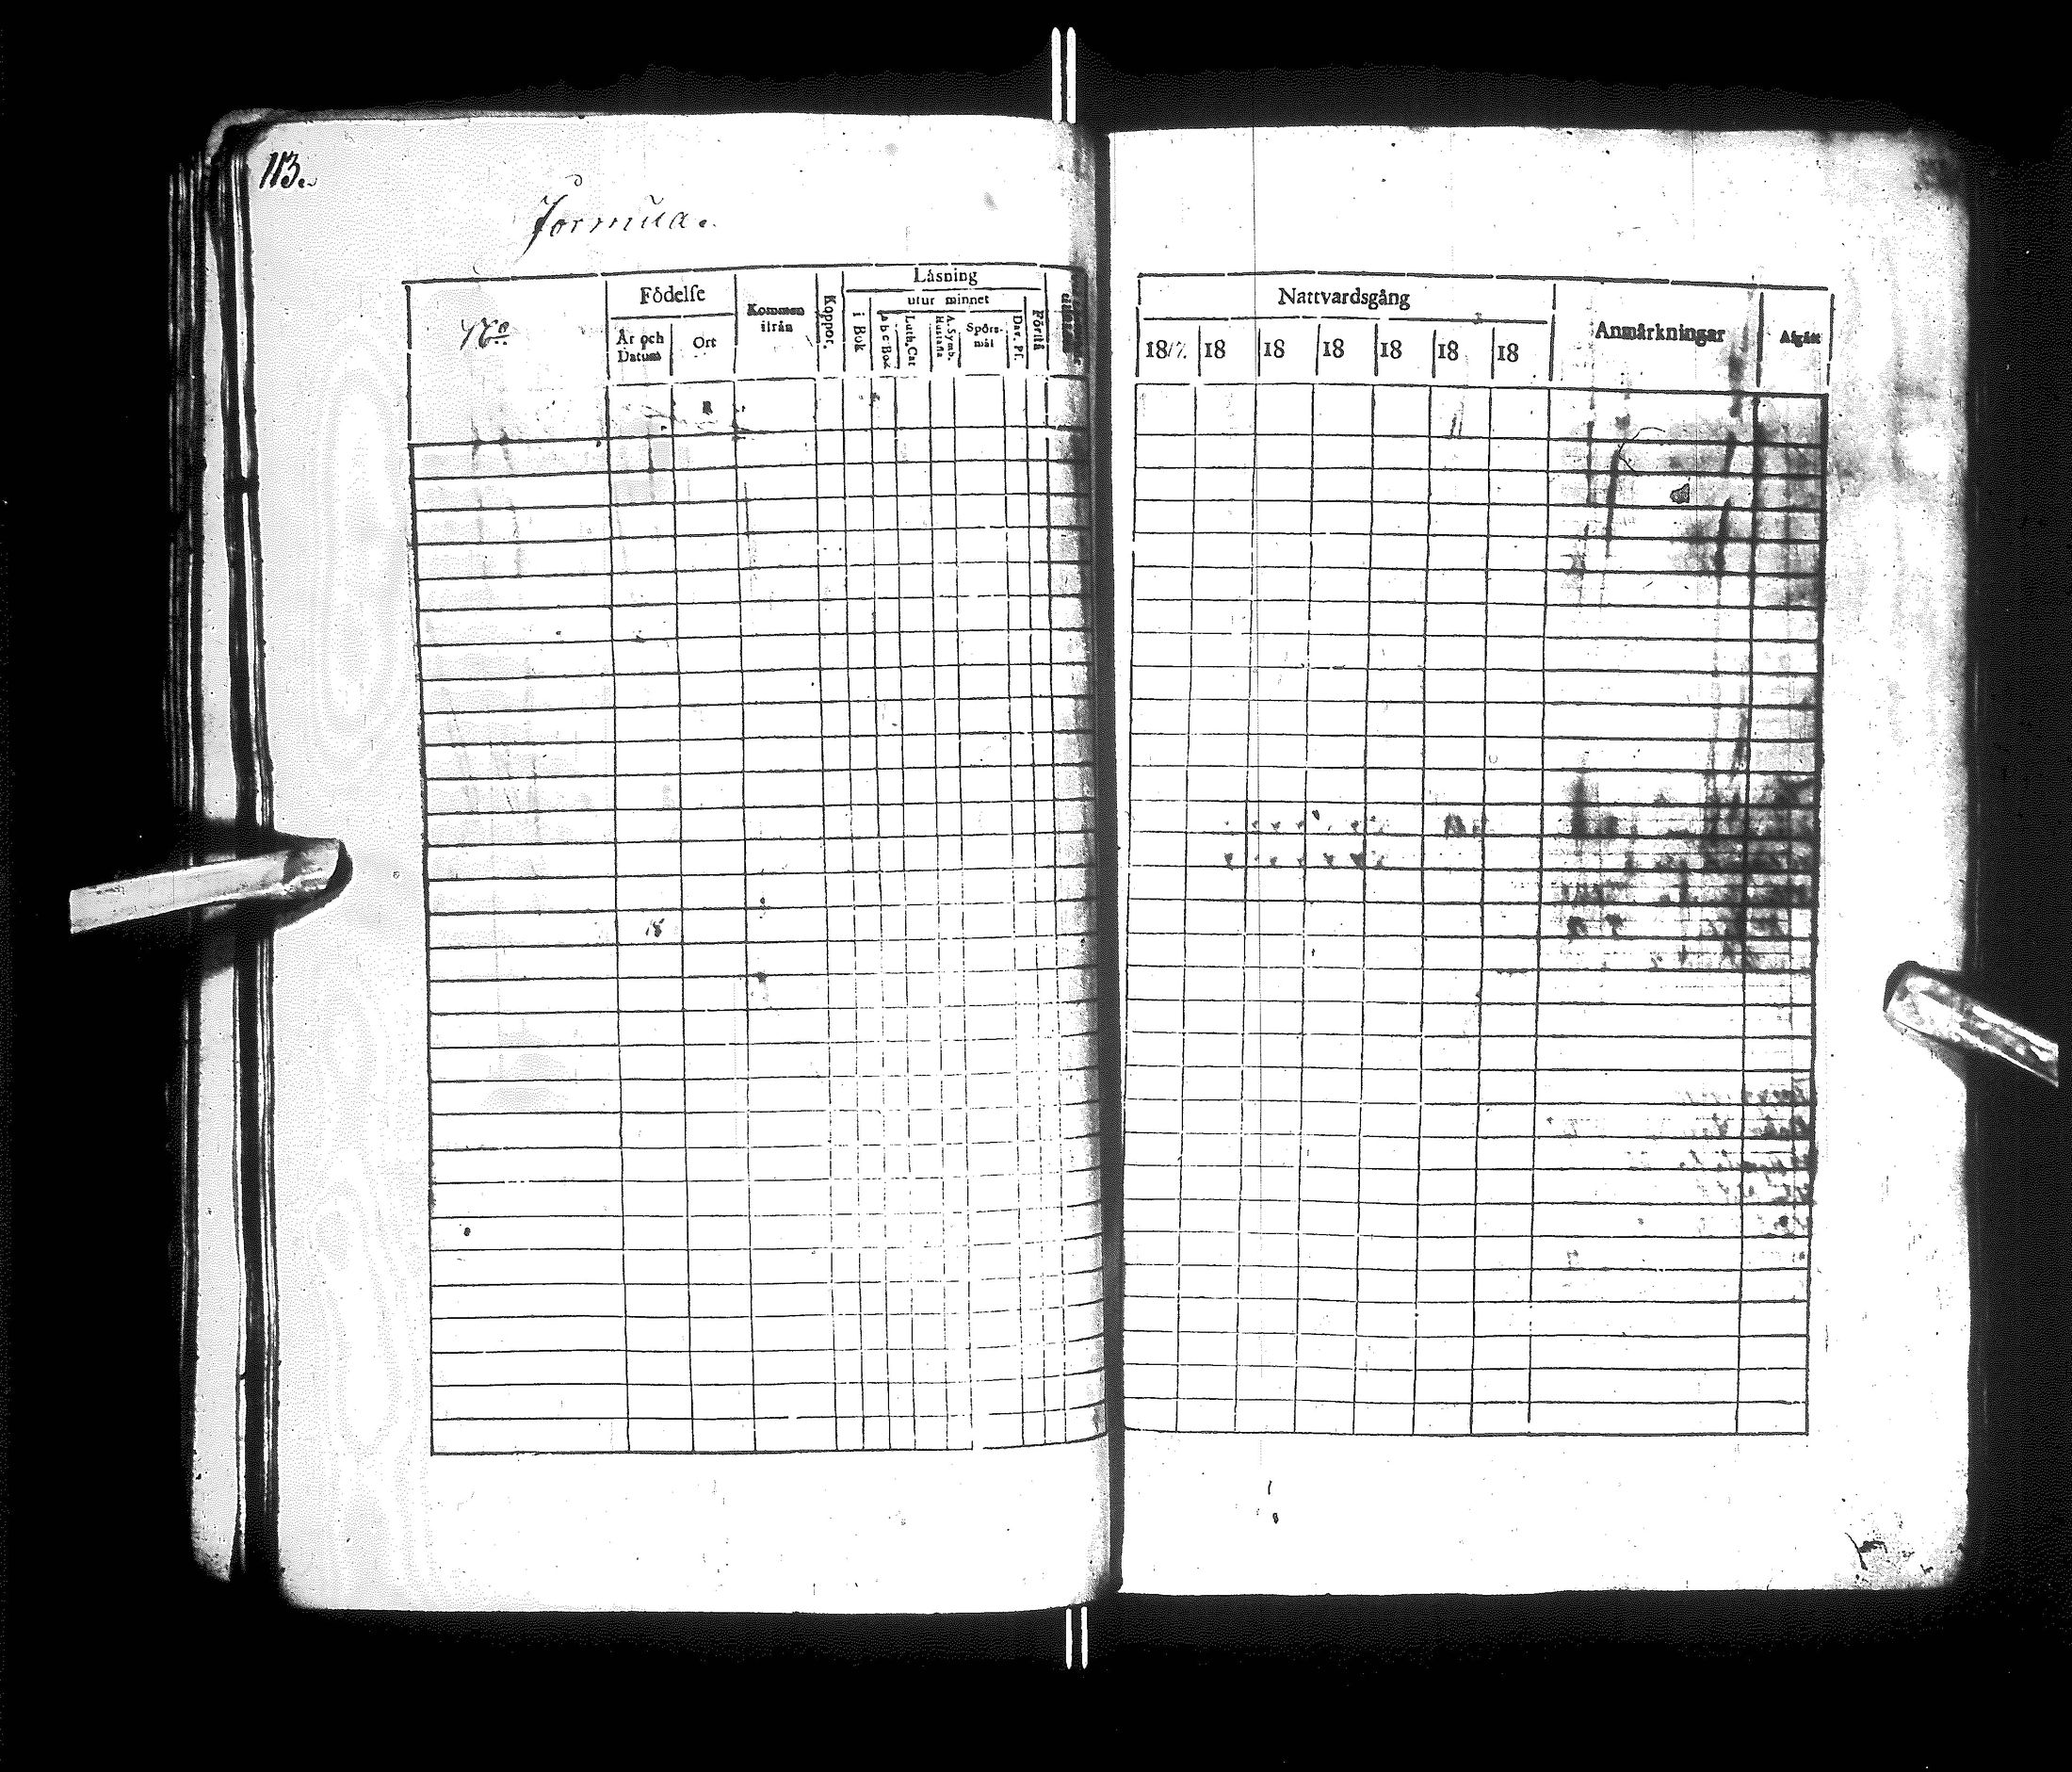 113.
Jormua.
No
Födelse
År och Datum
Ort
Kommen ifrån
Koppor.
Läsning
i Bok
utur minnet
A b c Bok
Luth. Cat
A. Symb. Hustafla
Spörsmål
Dav. Ps.
Förstå
Nattvardsgång
1817. 18 18 18 18 18 18
Anmärkningar
Afgått
18